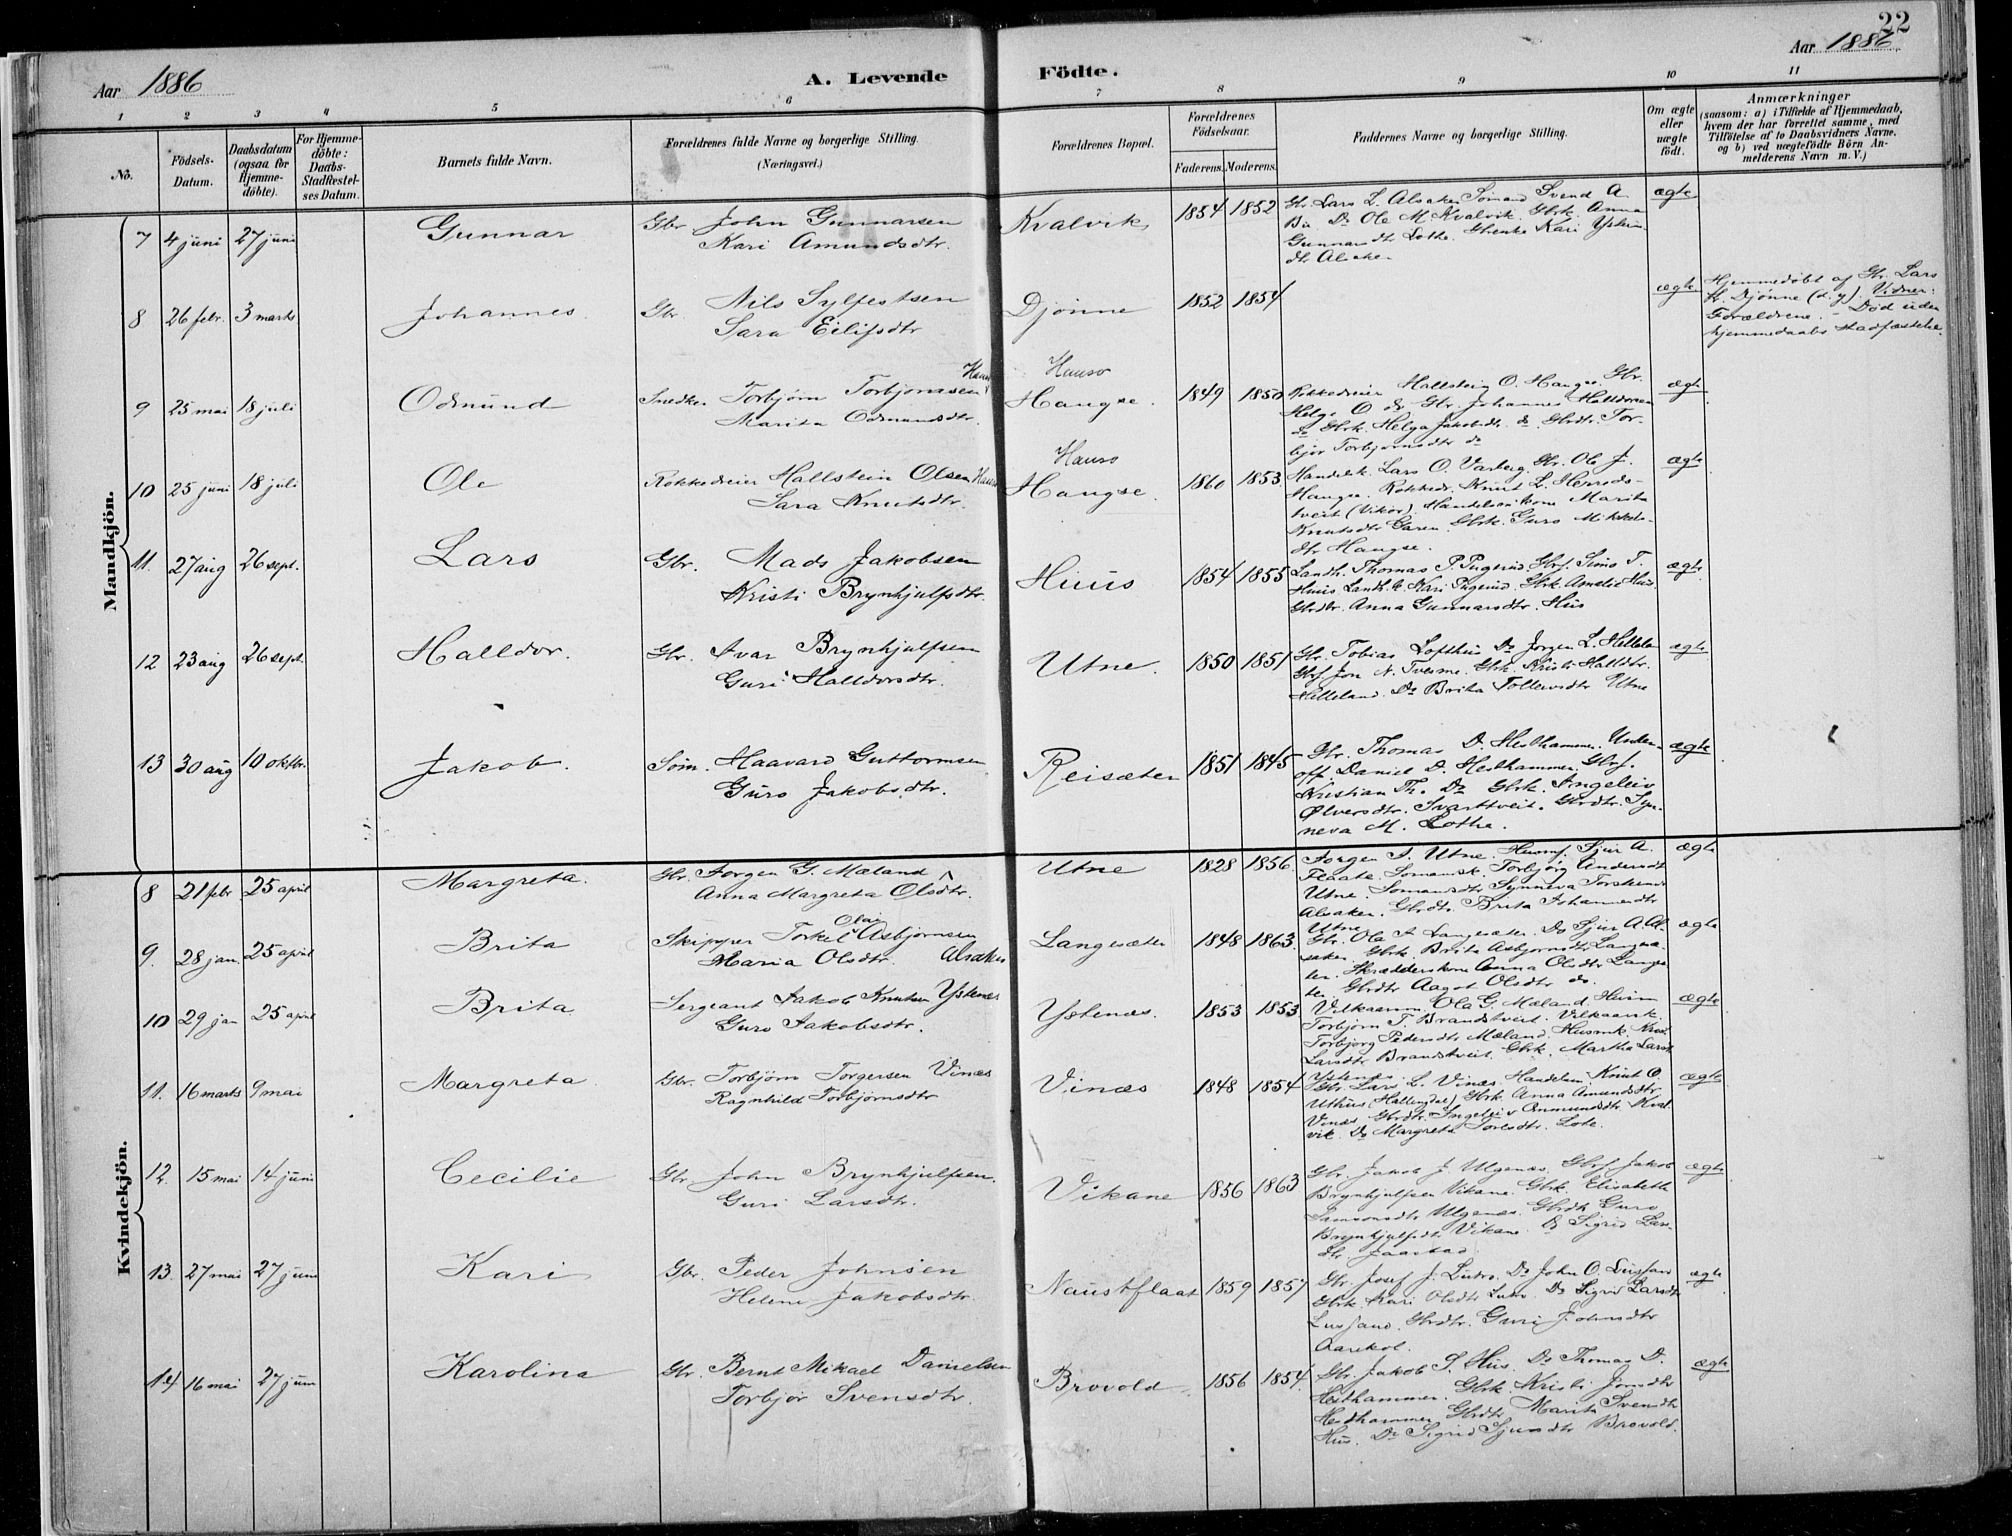 22
Aar 1886
A. Levende
Födte.
Aar 1886
1 2 3 4 5 6 7 8 9 10 11
No.
Födsels-Datum.
Daabsdatum (ogsaa for Hjemme-döbte).
For Hjemme-döbte: Daabs-Stadfæstelses Datum.
Barnets fulde Navn.
Forældrenes fulde Navne og borgerlige Stilling.
(Næringsvei.)
Forældrenes Bopæl.
Forældrenes Födselsaar.
Faderens. Moderens.
Faddernes Navne og borgerlige Stilling.
Om ægte eller uægte födt.
Anmærkninger
(saasom: a) i Tilfælde af Hjemmedaab,
hvem der har forrettet samme, med
Tilföielse af to Daabsvidners Navne.
og b) ved uægtefödte Börn An-
melderens Navn m. V.)
Mandkjön.
7 4 juni 27 juni Gunnar Gbr John Gunnarsen
Kari Amundsdtr.
Kvalvik 1854 1852
Gbr. Lars L. Alsaker Sömand Svend A.
Bu Do Ole M. Kvalvik. Gbrk. Anna
Gunnarsdtr Lothe. Kari
dtr Alsaker
ægte
8 26 febr. 3 marts Johannes Gbr. Nils Sylfestsen
Sara Eilifsdtr
Djönne 1852 1854 ægte
Hjemmedöbt af Gbr. Lars
Djönne (d.y). Vidner:
Forældrene. – Död uden
hjemmedaabs stadfæstelse.
9 25 mai 18 juli Odmund Snedker Torbjörn Torbjörnsen
Marita Odmundsdtr.
Hauso
Haugse. 1849 1850
Rokkedreier Hallstein O. Haugse. Gbr.
Helge O do Gbr. Johannes Halldorsen
do Gbrk. Helga Jakobsdtr do Gbrdtr. Tor-
björ Torbjörnsdtr do
ægte
10 25 juni 18 juli Ole Rokkedreier Hallstein Olsen
Sara Knutsdtr.
Hauso
Haugse. 1860 1853
Handelsk. Lars O. Varberg. Gbr. Ole J.
Haugse. Rokkedr. Knut L. Herreds-
tveit (Vikör). Handelsm kone Marita
Knutsdtr Garen. Gbrk. Guro Mikkels-
dtr Haugse.
ægte
11. 27 aug 26 sept. Lars Gbr. Mads Jakobsen
Kristi Brynhjulfsdtr.
Huus 1854 1855
Landh. Thomas P. Pugerud. Gbrf. Simo T.
Huus Landh.k. Kari Pugerud. Gbrk Amalie Huus
Gbrdtr. Anna Gunnarsdtr. Hus
ægte
12 23 aug 26 sept. Halldor. Gbr. Ivar Brynhjulfsen
Guri Halldorsdtr.
Utne. 1850 1851
Gbr. Tobias Lofthus Do Jörgen L. Helleland
Gbrf. Jon N. Tvesme. Gbrk. Kristi Halldtr.
Helleland. Do Brita Tollevsdtr Utne
ægte
13 30 aug 10 oktbr. Jakob. Söm. Haavard Guttormsen
Guro Jakobsdtr.
Reisæter 1851 1845
Gbr. Thomas D. Hesthammer. Under-
off. Daniel D. Hesthammer. Gbrf.
Kristian Th. Do Gbrk. Ingeleiv
Ölversdtr. Svarttveit. Gbrdtr. Syn-
neva M. Lothe.
ægte
Kvindekjön.
8 21 febr 25 april Margreta. Gbr. Jörgen G. Mæland
Anna Margreta Olsdtr.
Utne 1828 1856.
Jörgen J. Utne. Husmf. Sjur A.
Flaate. Sömansk. Torbjörg Andersdt
Utne. Sömansdtr Synneva
Alsaker. Gbrdtr. Brita Johannesdtr
Utne
ægte
9. 28 jan. 25 april Brita Skipper Torkel Olai Asbjörnsen
Maria Olsdtr. Alsaker
Langesæter 1848 1863.
Gbr. Ole A Langesæter. Do Sjur A. Al-
saker. Gbrk. Brita Asbjörnsdtr Langesæ-
ter. Skrædderskone Anna Olsdtr Langesæ-
ter. Gbrdtr Aagot Olsdtr do.
ægte
10 29 jan 25 april Brita Sergeant Jakob Knutsen Ystenæs
Guro Jakobsdtr.
Ystenæs. 1853 1853
Vilkaarm. Ola G. Mæland. Husm
Torbjörn T. Brandstveit. Vilkaarsk.
Torbjörg Pedersdtr Mæland. Husmk.
Larsdtr Brandstveit. Gbrk. Martha Larsdtr
Ystenæs.
ægte
11. 16 marts 9 mai Margreta Gbr. Torbjörn Torgersen Vinæs
Ragnhild Torbjörnsdtr
Vinæs 1848 1854
Gbr. Lars L. Vinæs. Handelsm Knut O.
Uthus (Hallingdal) Gbrk. Anna Amundsdtr
Vinæs. Gbrdtr. Ingeleiv Ammundsdtr. Kval-
vik. Do Margreta Torbsdtr. Lote.
ægte
12. 15 mai 14 juni Cecilie Gbr. John Brynhjulfsen.
Guri Larsdtr.
Vikane 1856 1863
Gbr. Jakob J. Ulgenæs. Gbrf. Jakob
Brynhjulfsen Vikane. Gbrk. Elisabeth
Samsonsdtr Ulgenæs. Gbrdtr Guro
Brynhjulfsdtr Vikane. Do Sigrid Lars-
dtr. Jaastad
ægte
13. 27 mai 27 juni Kari Gbr. Peder Johnsen
Helene Jakobsdtr.
Naustflaat 1859 1857
Gbr. Josef J. Lutro. Do John O. Lussand
Gbrk. Kari Olsdtr Lutro Do Sigrid Larsdtr
Lussand. Gbrdtr. Guri Johnsdtr
Aarekol.
ægte
14 16 mai 27 juni Karolina Gbr. Bernt Mikael Danielsen
Torbjör Svensdtr.
Brovold. 1856 1854.
Gbr. Jakob S. Hus. Do Thomas D.
Hesthammer. Gbrk. Kristi Jonsdtr
Hesthammer. Gbrdtr. Marita Svendsdtr
Hus. Do Sigrid Sjursdtr Brovold.
ægte